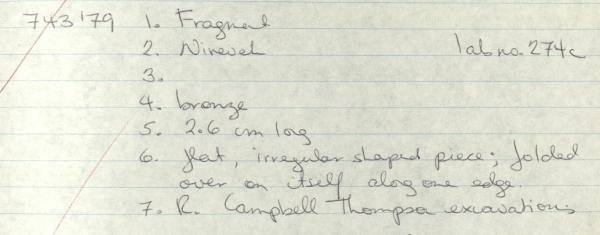 743'79 1. Fragment
2. Nineveh lab no. 274c
3.
4. bronze
5. 2.6 cm long
6. flat, irregular shaped piece; folded
over on itself along one edge.
7. R. Campbell Thompson excavations